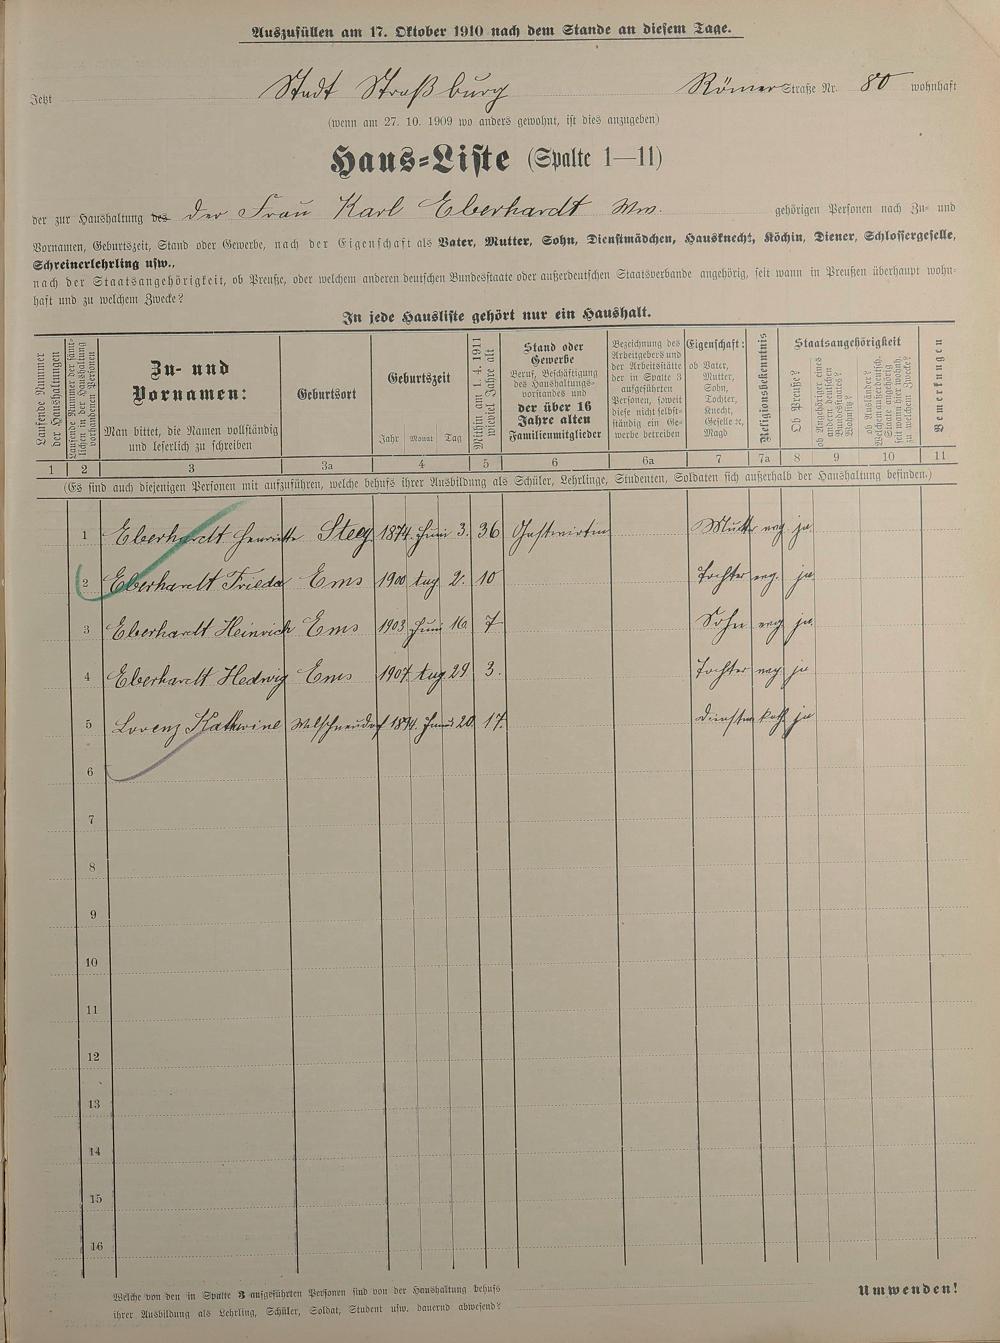 Auszufüllen am 17. Oktober 1910 nach dem Stande an diesem Tage.
Jetzt Stadt Straßburg Römer Straße Nr. 80 wohnhaft
(wenn am 27. 10. 1909 wo anders gewohnt, ist dies anzugeben)
Haus-Liste (Spalte 1—11)
der zur Haushaltung des der Frau Karl Eberhardt Ww. gehörigen Personen nach Zu- und
Vornamen, Geburtszeit, Stand oder Gewerbe, nach der Eigenschaft als Vater, Mutter, Sohn, Dienstmädchen, Hausknecht, Köchin, Diener, Schlossergeselle,
Schreinerlehrling usw.,
nach der Staatsangehörigkeit, ob Preuße, oder welchem anderen deutschen Bundesstaate oder außerdeutschen Staatsverbande angehörig, seit wann in Preußen überhaupt wohn-
haft und zu welchem Zwecke?
In jede Hausliste gehört nur ein Haushalt.
Laufende Nummer
der Haushaltungen
Laufende Nummer der sämt-
lichen in der Haushaltung
vorhandenen Personen
Zu- und
Vornamen:
Man bittet, die Namen vollständig
und leserlich zu schreiben
Geburtsort
Geburtszeit
Jahr Monat Tag
Mithin am 1. 4. 1911
wieviel Jahre alt
Stand oder
Gewerbe
Beruf, Beschäftigung
des Haushaltungs-
vorstandes und
der über 16
Jahre alten
Familienmitglieder
Bezeichnung des
Arbeitgebers und
der Arbeitsstätte
der in Spalte 3
aufgeführten
Personen, soweit
diese nicht selbst-
ständig ein Ge-
werbe betreiben
Eigenschaft:
ob Vater,
Mutter,
Sohn,
Tochter,
Knecht,
Geselle ec,
Magd
Religionsbekenntnis
Staatsangehörigkeit
Ob Preuße?
ob Angehöriger eines
andern deutschen
Bundesstaates?
Wohnsitz?
ob Ausländer?
Welchem außerdeutsch.
Staate angehörig
seit wann hier wohnh.
zu welchem Zwecke?
Bemerkungen
1 2 3 3a 4 5 6 6a 7 7a 8 9 10 11
(Es sind auch diejenigen Personen mit aufzuführen, welche behufs ihrer Ausbildung als Schüler, Lehrlinge, Studenten, Soldaten sich außerhalb der Haushaltung befinden.)
1 Eberhardt Henriette Steeg 1874 Juni 3. 36 Gastwirtin Mutter evg ja
2 Eberhardt Frieda Ems 1900 Aug 2. 10 Tochter evg. ja
3 Eberhardt Heinrich Ems 1903 Juni 16 7 Sohn evg ja
4 Eberhardt Hedwig Ems 1907 Aug 29 3. Tochter evg ja
5 Lorenz Katharine Welschneudorf 20 17. Dienstm kath ja
6
7
8
9
10
11
12
13
14
15
16
Welche von den in Spalte 3 aufgeführten Personen sind von der Haushaltung behufs
ihrer Ausbildung als Lehrling, Schüler, Soldat, Student usw. dauernd abwesend?
Umwenden!